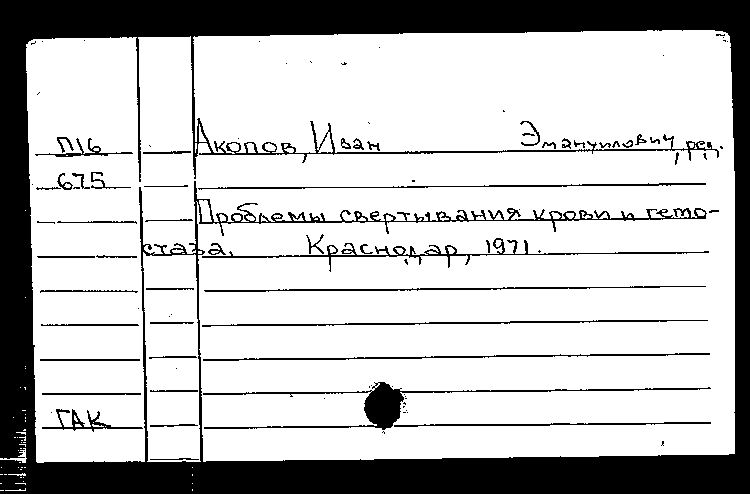 П16 Акопов, Иван Эмануилович, ред.
675
Проблемы свертывания крови и гемо-
стаза. Краснодар, 1971.
ГАК